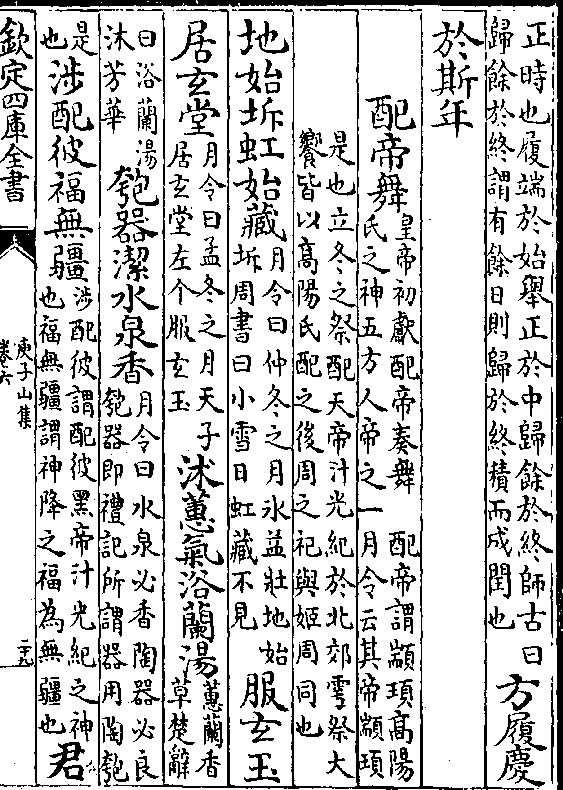 正時也履端於始舉正於中歸餘於終師古曰
歸餘於終謂有餘日則歸於終積而成閏也
方履慶
於斯年
配帝舞
皇帝初獻配帝奏舞　配帝謂顓頊高陽
氏之神五方人帝之一月令云其帝顓頊
是也立冬之祭配天帝汁光紀於北郊雩祭大
饗皆以高陽氏配之後周之祀與姬周同也
地始坼虹始藏
月令曰仲冬之月氷益壯地始
坼周書曰小雪日虹藏不見
服玄玉
居玄堂
月令曰孟冬之月天子
居玄堂左个服玄玉
沐蕙氣浴蘭湯
蕙蘭香
草楚辭
曰浴蘭湯
沐芳華
匏器潔水泉香
月令曰水泉必香陶器必良
匏器即禮記所謂器用陶匏
是
也
涉配彼福無疆
涉配彼謂配彼黑帝汁光紀之神
也福無疆謂神降之福為無疆也
君
欽定四庫全書
庾子山集
卷六
二十九